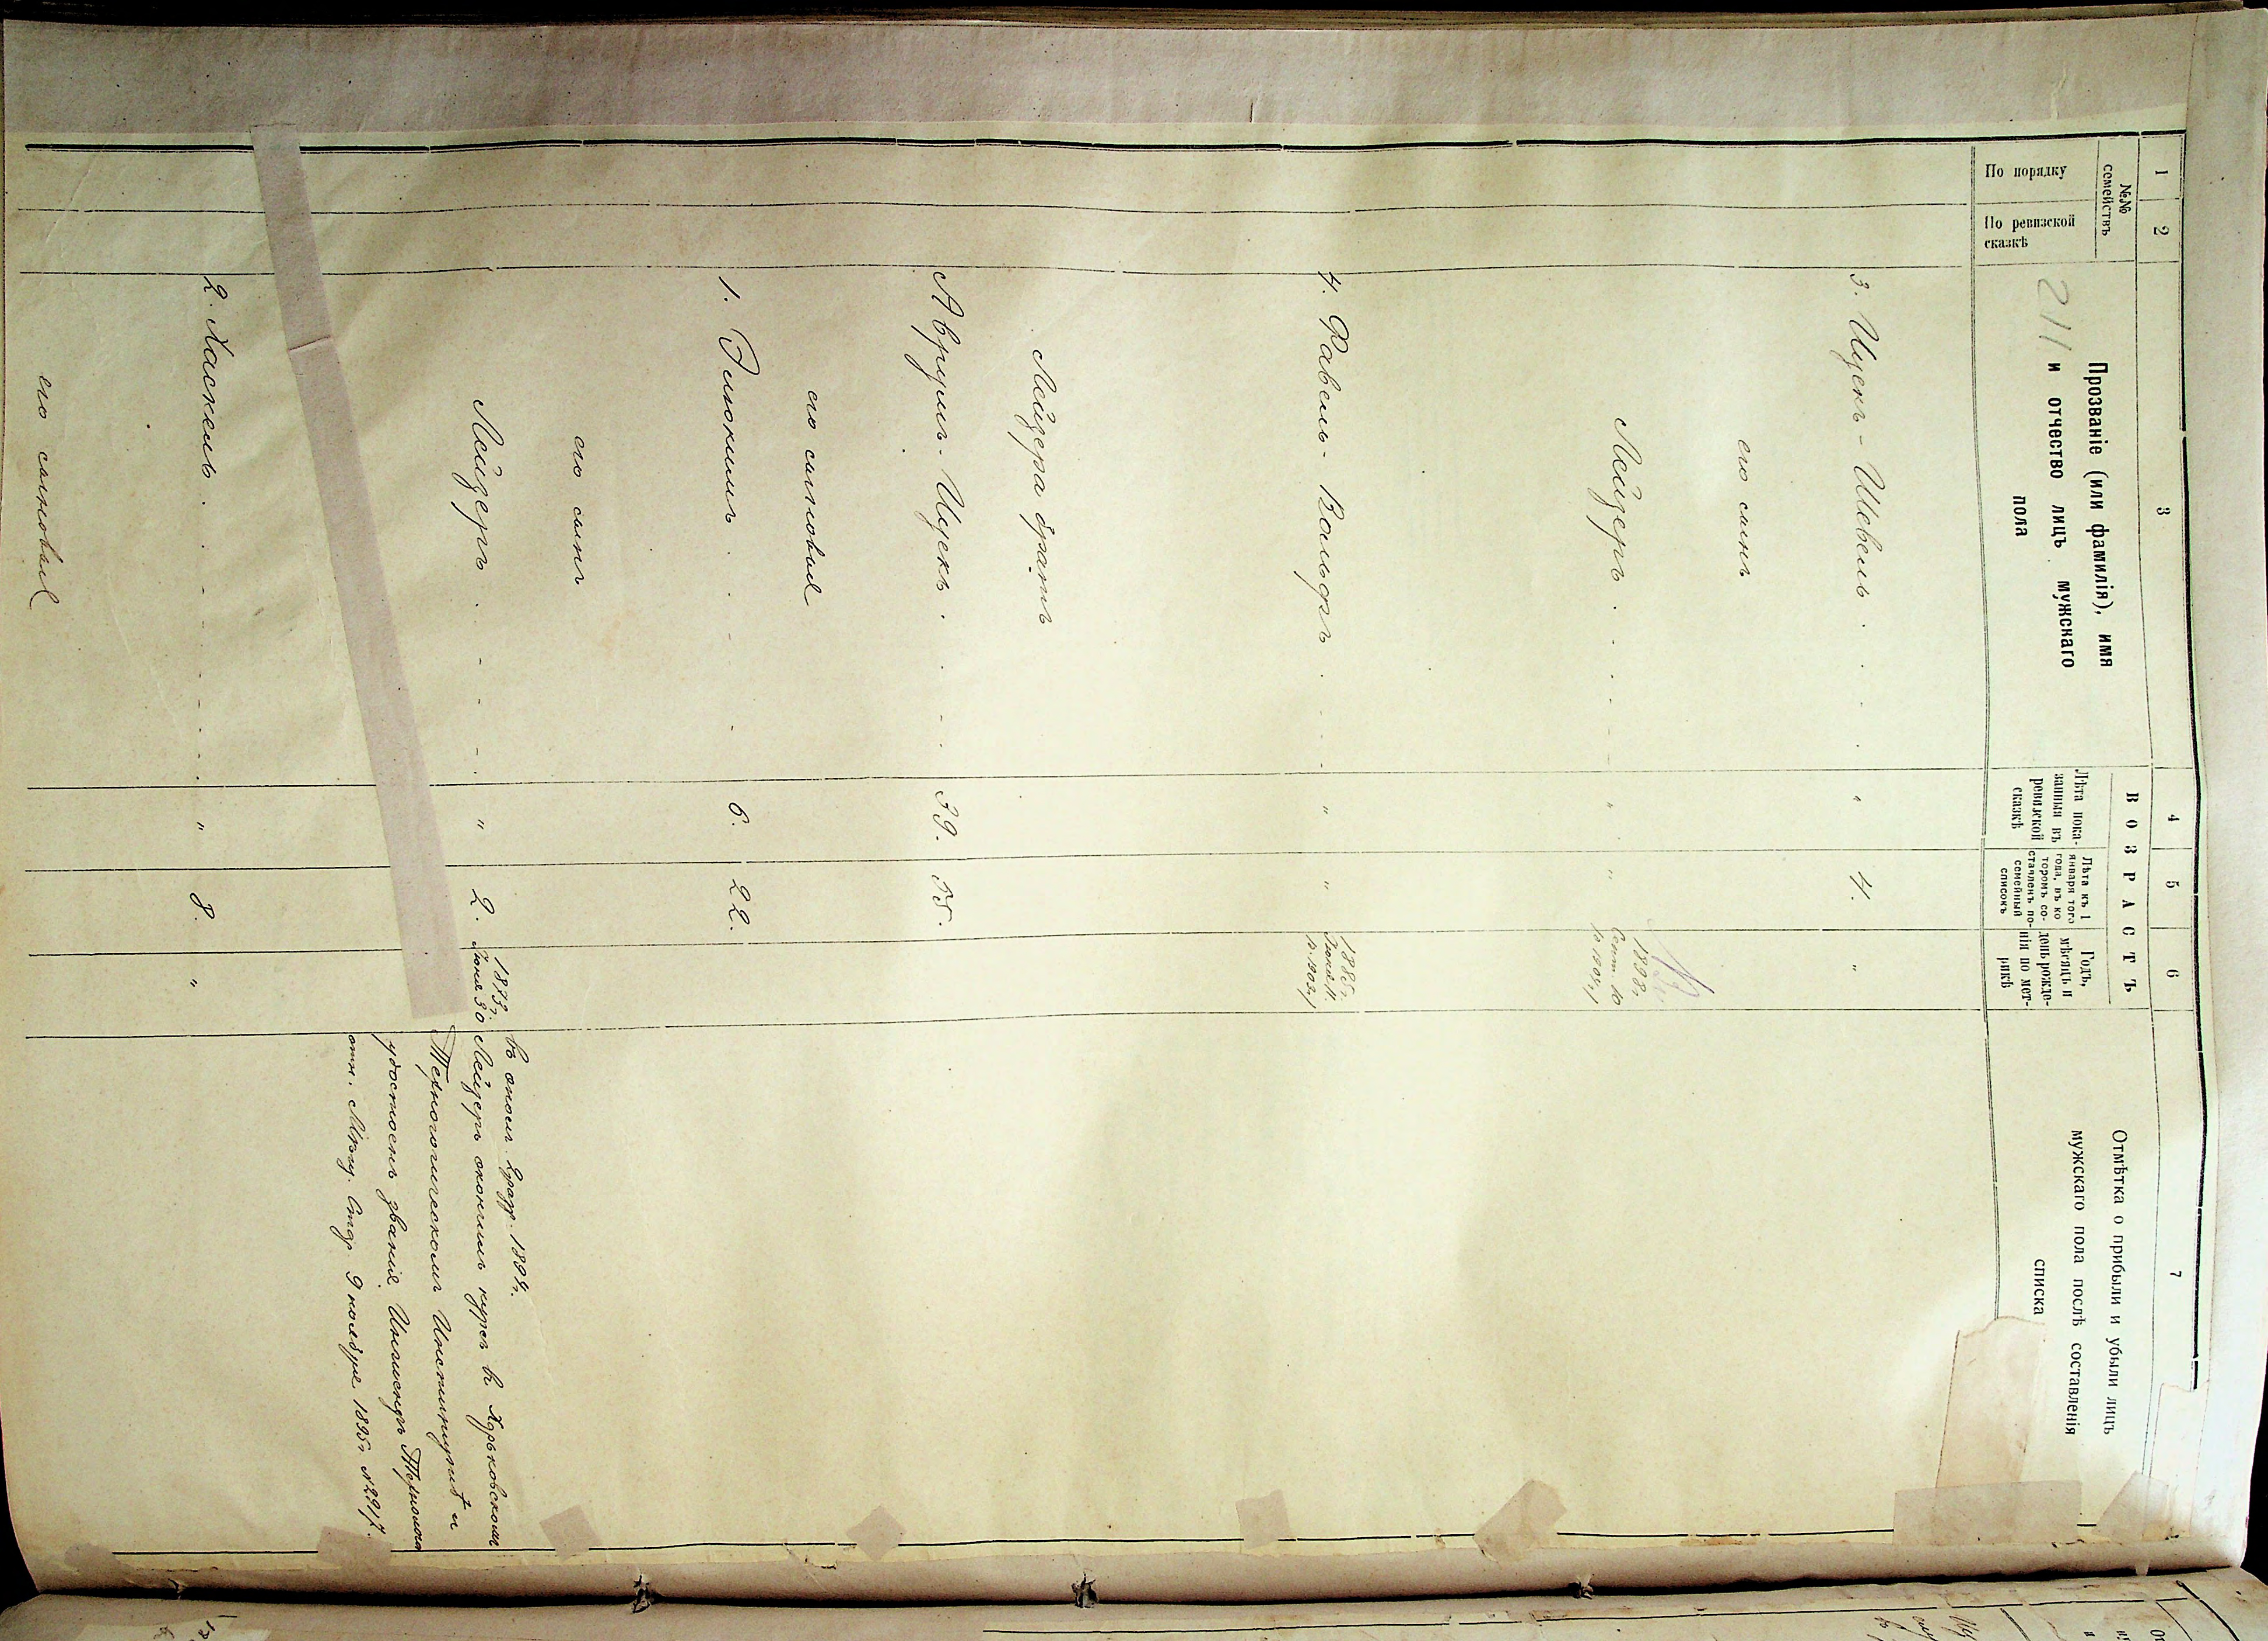 1
2
3
4
5
6
7
№№
семействъ
По порядку
По ревизской
сказкѣ
Прозваніе (или фамилія), имя
и отчество лицъ мужскаго
пола
211
ВОЗРАСТЪ
Лѣта пока-
занныя въ
ревизской
сказкѣ
Лѣта къ 1
января того
года, въ ко
торомъ со-
ставленъ по-
семейный
списокъ
Годъ,
мѣсяцъ и
день рожде-
нія по мет-
рикѣ
Отмѣтка о прибыли и убыли лицъ
мужскаго пола послѣ составленія
списка
3. Ицекъ-Шевель . . . . " 4. "
его сынъ
Лейзеръ . . . . " " 1898г.
Сент. 10
4. Фавель-Вольфъ . . . " " 1885г.
Лейзера братъ
Аврумъ-Ицекъ . . . . 39. 55.
его сыновья
1. Элюкимъ . . . 6. 22.
его сынъ
Лейзеръ . . . . " 2. 1873г.
Іюня 30
Лейзеръ окончилъ курсъ въ Харьковскомъ
Технологическомъ Институтѣ и
удостоенъ званія Инженеръ Технолога
отн. 9 ноября 1895г. №2917.
2. Хаскель . . . . . " 8. "
его сыновья